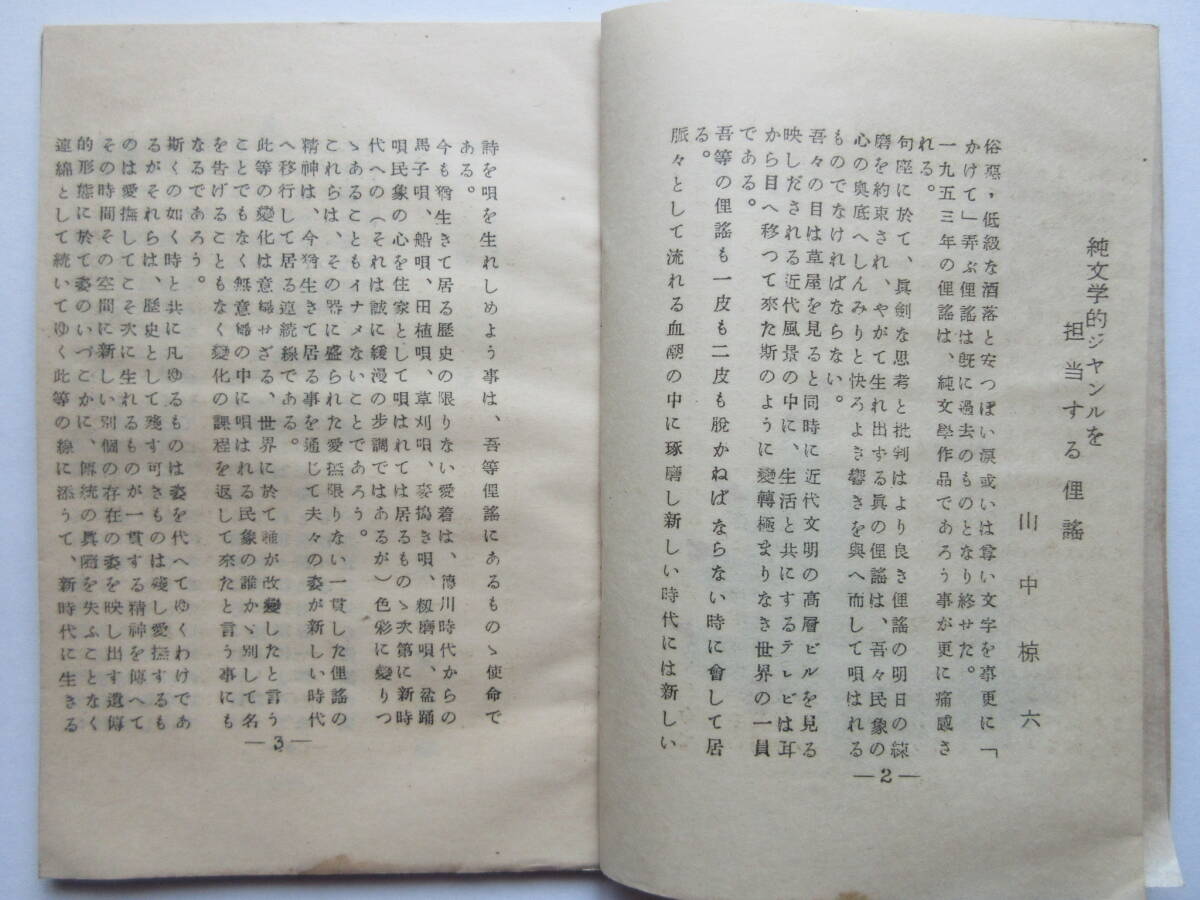 純文学的ジヤンルを
担当する俚謠
山中椋六
俗惡，低級な酒落と安つぽい涙或いは尊い文字を事更に「
かけて」弄ぶ俚謠は既に過去のものとなり終せた。
一九五三年の俚謠は、純文學作品であろう事が更に痛感さ
れる。
句座に於て、眞劍な思考と批判はより良き俚謠の明日の練
磨を約束され、やがて生れ出する眞の俚謠は、吾々民象の
心の奥底へしんみりと快ろよき響きを與へ而して唄はれる
ものでなければならない。
吾々の目は草屋を見ると同時に近代文明の高層ビルを見る
映しだされる近代風景の中に、生活と共にするテレビは耳
から目へ移つて來た斯のように變轉極まりなき世界の一員
である。
吾等の俚謠も一皮も二皮も脫かねばならない時に會して居
る。
脈々として流れる血の中に琢磨し新しい時代には新しい
―2―
詩を唄を生れしめよう事は、吾等俚謠にあるものゝ使命で
ある。
今も猶生きて居る歷史の限りない愛着は、德川時代からの
馬子唄、船唄、田植唄、草刈唄、麥搗き唄、籾磨唄、盆踊
唄民象の心を住家として唄はれては居るものゝ次第に新時
代への（それは誠に緩漫の步調ではあるが）色彩に變りつ
ゝあることもイナメないことであろう。
これらは、その器に盛られた愛撫限りない一貫した俚謠の
精神は、今猶生きて居る事を通じて夫々の姿が新しい時代
へ移行して居る連続線である。
此等の變化は意せざる、世界に於て種が改變したと言う
ことでもなく無意の中に唄はれる民象の誰かゝ別して名
を告げることもなく變化の課程を返して來たと言う事にも
なるであろう。
斯くの如く時と共に凡ゆるものは姿を代へてゆくわけであ
るがそれらは、歷史として殘す可きものは殘し愛撫するも
のは愛撫してこそ次に生れるものが一貫する精神を傳へて
その時間その空間に新しい別個の存在の姿を映し出す遺傳
的形態に於て姿のいづこかに、傳統の眞隨を失ふことなく
連綿として続いてゆく此等の線に添うて、新時代に生きる
―3―